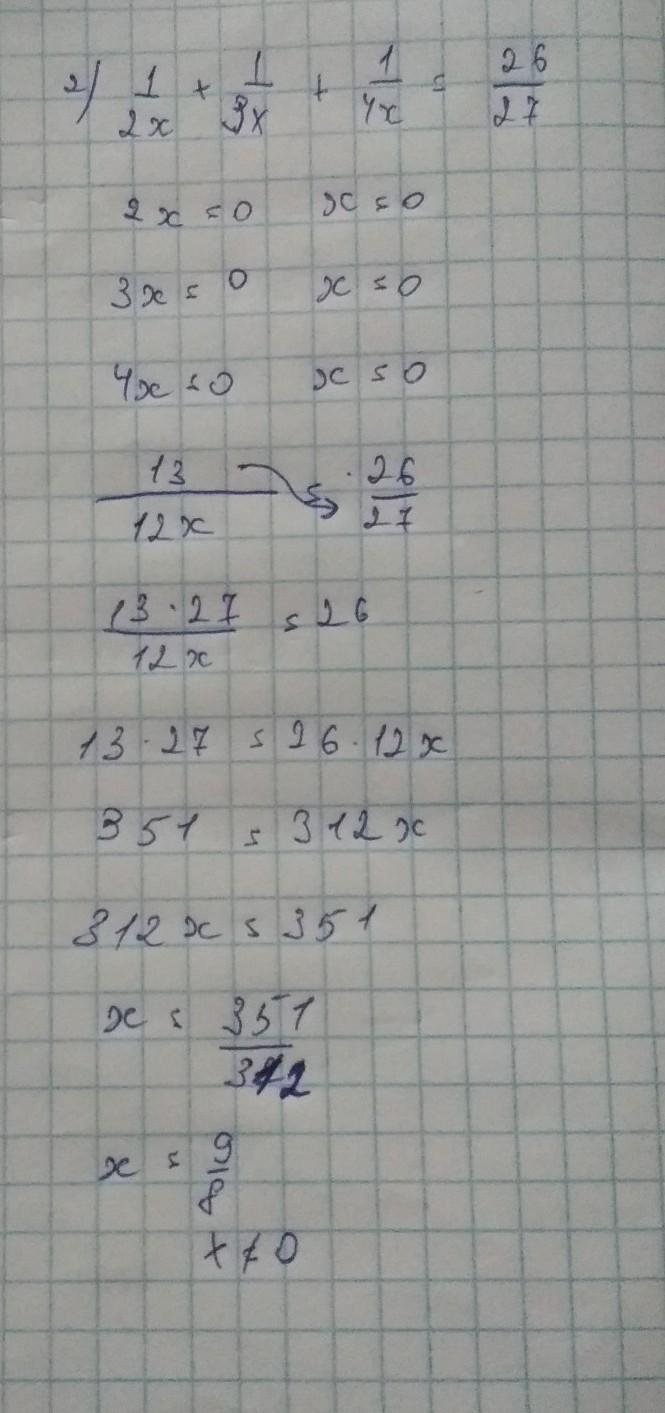 2) 1/2x + 1/3x + 1/4x = 26/27
2x = 0 x = 0
3x = 0 x = 0
4x = 0 x = 0
13/12x = 26/27
13·27/12x = 26
13·27 = 26·12x
351 = 312x
312x = 351
x = 351/312
x = 9/8
x ≠ 0